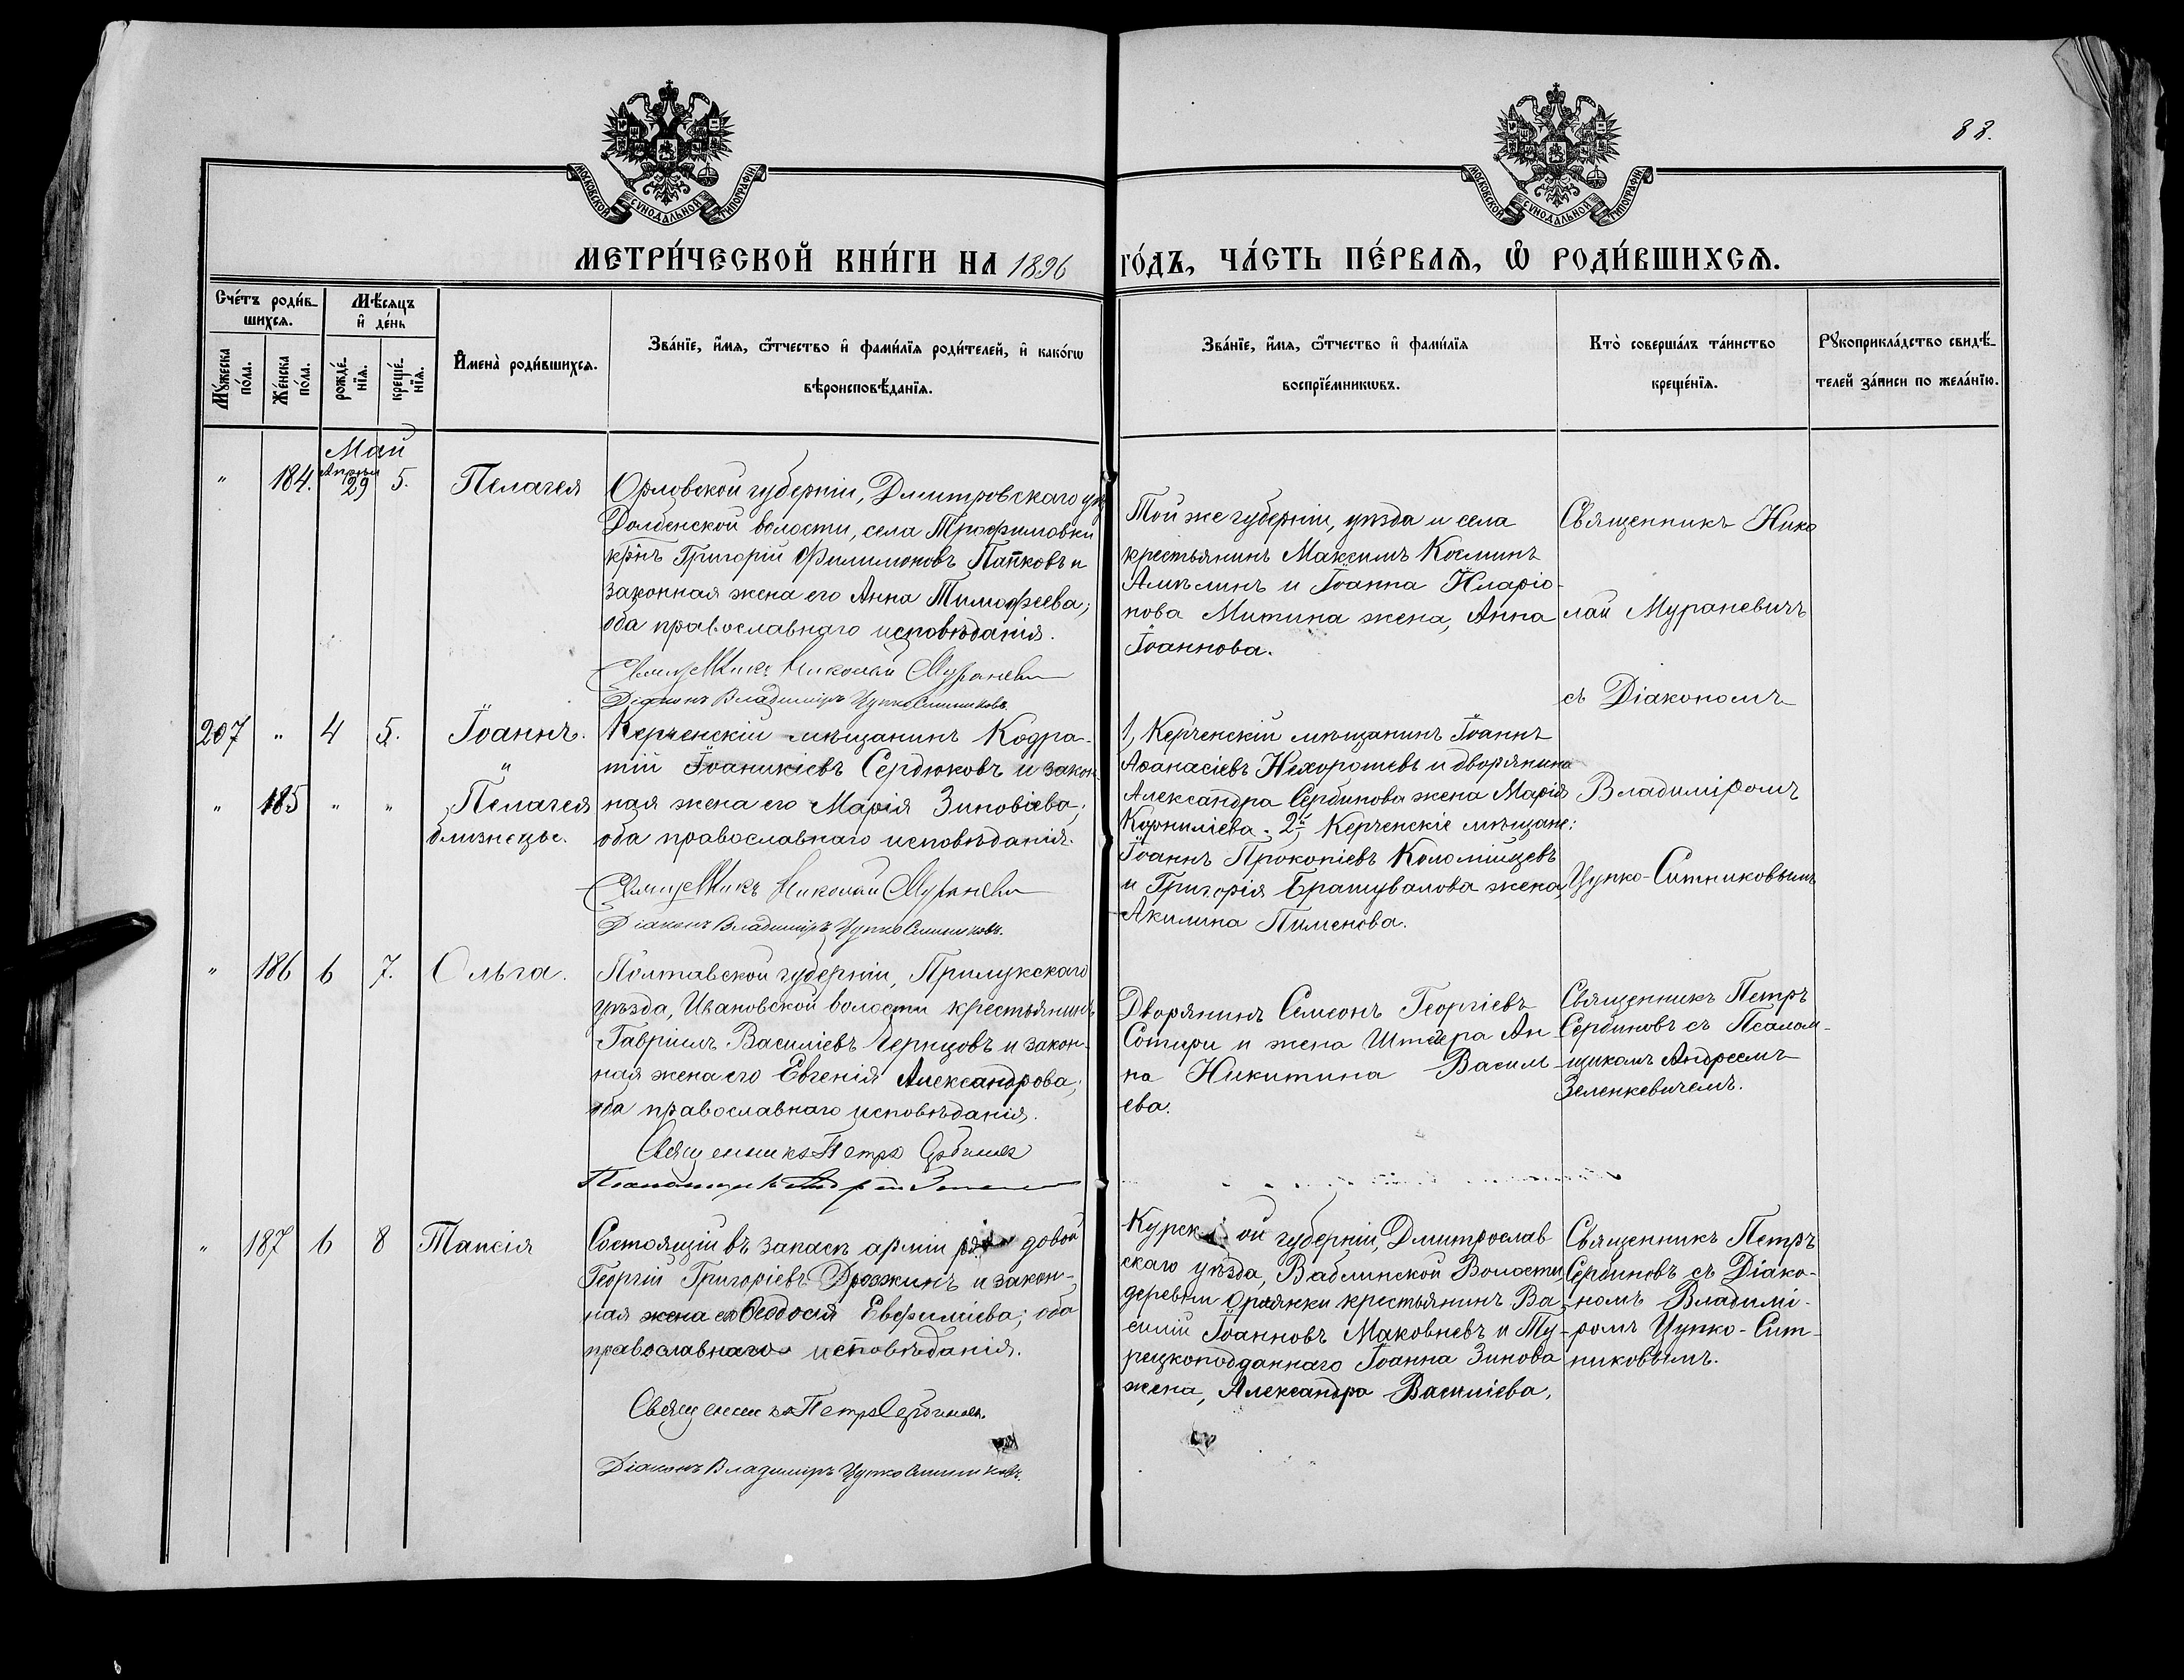 88.
МОСКОВСКОЙ СѴНОДАЛЬНОЙ ТИПОГРАФІИ
МОСКОВСКОЙ СѴНОДАЛЬНОЙ ТИПОГРАФІИ
МЕТРИ́ЧЕСКОЙ КНИ́ГИ НА 1896 ГО́ДЪ, ЧА́СТЬ ПЕ́РВАѦ, Ѡ҆ РОДИ́ВШИХСѦ.
Сче́тъ роди́в-
шихсѧ.
Мѣ́сѧцъ
и҆ де́нь
Мꙋ́жеска по́ла.
Же́нска по́ла.
рожде́-нїѧ.
креще́-нїѧ.
И҆мена̀ роди́вшихсѧ.
Зва́нїе, и҆́мѧ, ѻ҆́тчество и҆ фами́лїѧ роди́телей, и҆ како́гѡ
вѣроисповѣ́данїѧ.
Зва́нїе, и҆́мѧ, ѻ҆́тчество и҆ фами́лїѧ
воспрїе́мникѡвъ.
Кто̀ соверша́лъ та́инство
креще́нїѧ.
Рꙋкоприкла́дство свидѣ́-
телей за́писи по жела́нїю.
Май
" 184. Апрѣля 29 5. Пелагея
Орловской губерніи, Дмитровскаго уѣз
Долбенской волости, села Трофимовки
кр҃нъ Григорій Филимоновъ Папковъ и
законная жена его Анна Тимофеева;
оба православнаго исповѣданія.
Священникъ Николай Мураневичъ
Діаконъ Владиміръ Цупко Ситниковъ.
Той же губерніи, уѣзда и села
крестьянинъ Максимъ Косминъ
Амѣлинъ и Іоанна Иларіо-
нова Митина жена, Анна
Іоаннова.
Священникъ Нико
лай Мураневичъ
съ Діакономъ
Владиміромъ
Цупко-Ситниковымъ
207 " 4 5. Іоаннъ.
"
" 185 " " Пелагея
близнецы.
Керченскій мѣщанинъ Кодра-
тій Іоаникіевъ Сердюковъ и закон
ная жена его Марія Зиновіева;
оба православнаго исповѣданія.
Священникъ Николай Мураневичъ
Діаконъ Владиміръ Цупко Ситниковъ.
1, Керченскій мѣщанинъ Іоаннъ
Аѳанасіевъ Нехорошевъ и дворянина
Александра Сербинова жена Марія
Корниліева. 2й, Керченскіе мѣщане:
Іоаннъ Прокопіевъ Коломійцевъ
и Григорія Брашувалова жена,
Акилина Пименова.
" 186 6 7. Ольга.
Полтавской губерніи, Прилукскаго
уѣзда, Ивановской волости крестьянинъ
Гавріилъ Василіевъ Чернцовъ и закон-
ная жена его Евгенія Александрова;
оба православнаго исповѣданія.
Священникъ Петръ Сербиновъ
Псаломщикъ Андрей
Дворянинъ Семеонъ Георгіевъ
Сотири и жена Ан-
на Никитина Васил-
ева.
Священникъ Петръ
Сербиновъ съ Псалом-
щикомъ Андреемъ
Зеленкевичемъ.
" 187 6 8 Таисія
Состоящій въ запасѣ арміи рядовой
Георгій Григоріевъ Дрожжинъ и закон-
ная жена его Ѳеодосія Евфиміева; оба
православнаго исповѣданія.
Священникъ Петръ Сербиновъ.
Діаконъ Владиміръ Цупко Ситниковъ.
Курской губерніи, Дмитрослав
скаго уѣзда, Ваблинской Волости
деревни крестьянинъ Ва-
силій Іоанновъ Маковневъ и Ту-
рецкоподданнаго Іоанна Зинова
жена, Александра Василіева,
Священникъ Петръ
Сербиновъ съ Діако-
номъ Владимі-
ромъ Цупко-Сит-
никовымъ.